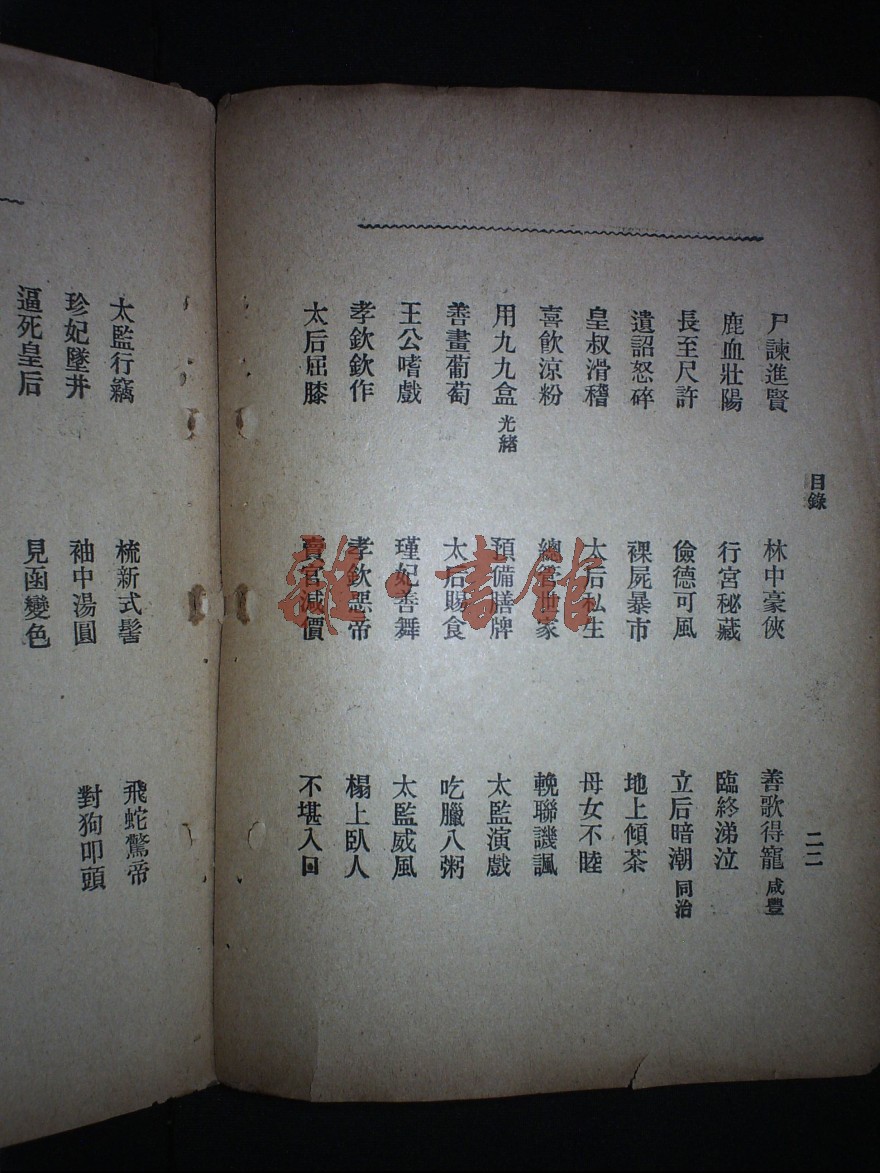 目錄 二二
尸諫進賢 林中豪俠 善歌得寵 咸豐
鹿血壯陽 行宮秘藏 臨終涕泣
長至尺許 儉德可風 立后暗潮 同治
遺詔怒碎 裸屍暴市 地上傾茶
皇叔滑稽 太后私生 母女不睦
喜飲涼粉 總管世家 輓聯譏諷
用九九盒 光緒 預備膳牌 太監演戲
善畫葡萄 太后賜食 吃臘八粥
王公嗜戲 瑾妃善舞 太監威風
孝欽欽作 孝欽惡帝 榻上臥人
太后屈膝 賣官減價 不堪入回
太監行竊 梳新式髻 飛蛇驚帝
珍妃墜井 袖中湯圓 對狗叩頭
逼死皇后 見函變色
雜·書館